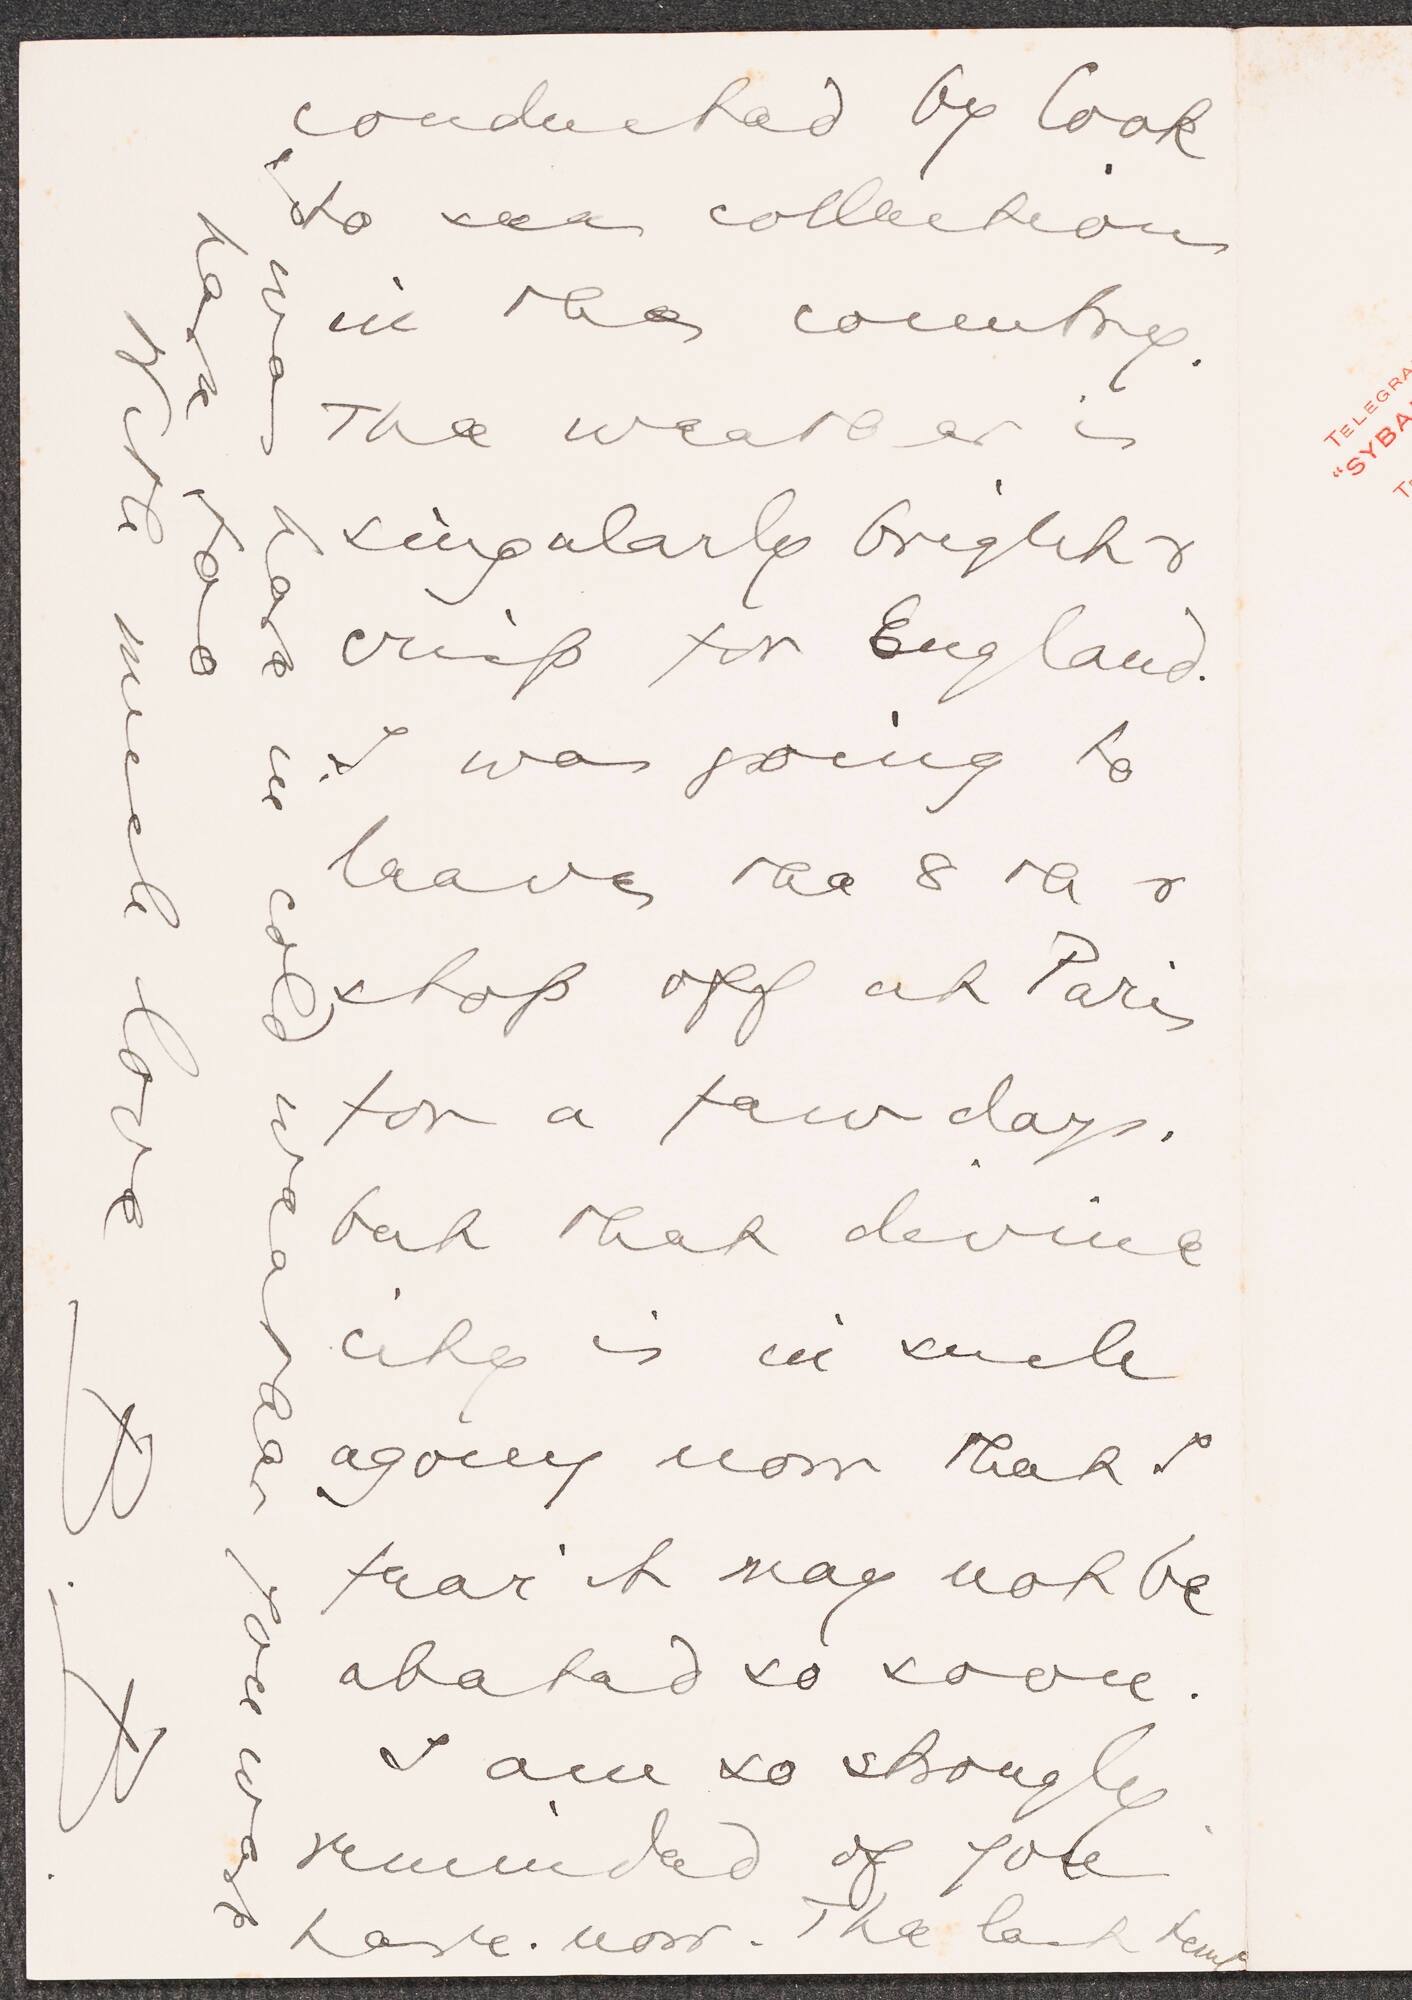 conducted by Cook
to see collections
in the country.
The weather is
singularly bright &
crisp for England.
I was going to
leave the 8th &
stop off at Paris
for a few days.
but that divine
city is in such
agony now that I
fear it may not be
abated so soon.
I am so strongly
reminded of you
here. now. The last time
we were here in cold weather you were
here too
With much love
B. B.
TELEGRA
"SYBA
T